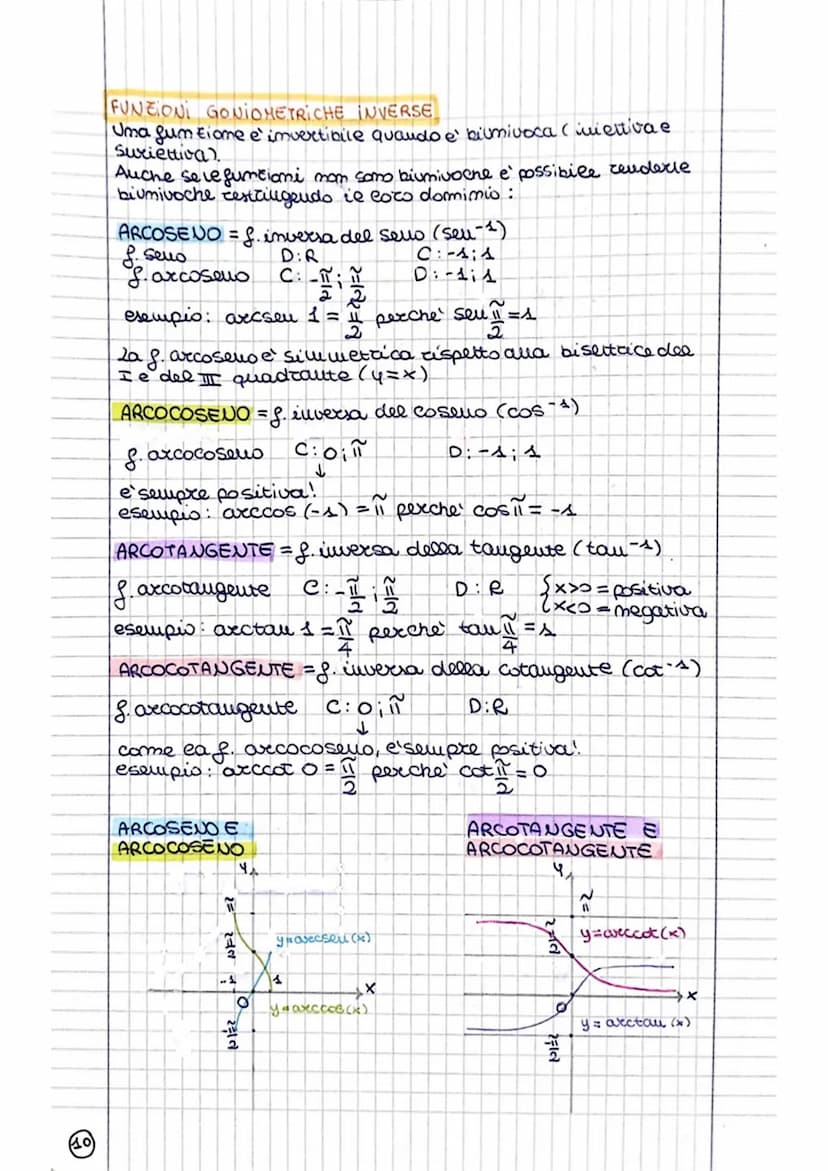 FUNZIONI GONIOMETRICHE INVERSE
Una funzione e' invertibile quando e' biunivoca (iniettiva e
suriettiva).
Anche se le funzioni non sono biunivoche e' possibile renderle
biunivoche restringendo il loro dominio :
ARCOSENO = f. inversa del seno (sen⁻¹)
f. seno D:R C:-1;1
f. arcoseno C: -π/2; π/2 D:-1;1
esempio: arcsen 1 = π/2 perche' sen π/2 = 1
la f. arcoseno e' simmetrica rispetto alla bisettrice del
I e del III quadrante (y=x)
ARCOCOSENO = f. inversa del coseno (cos⁻¹)
f. arcocoseno C: 0;π D:-1;1
↓
e' sempre positiva!
esempio: arccos (-1) = π perche' cos π = -1
ARCOTANGENTE = f. inversa della tangente (tan⁻¹)
f. arcotangente C: -π/2 ; π/2 D:R {x>0 = positiva
{x<0 = negativa
esempio: arctan 1 = π/4 perche' tan π/4 = 1
ARCOCOTANGENTE = f. inversa della cotangente (cot⁻¹)
f. arcocotangente C: 0;π D:R
↓
come la f. arcocoseno, e' sempre positiva!
esempio: arccot 0 = π/2 perche' cot π/2 = 0
ARCOSENO E
ARCOCOSENO
y
π
π/2
y=arcsen(x)
-1
1
x
0
y=arccos(x)
-π/2
ARCOTANGENTE E
ARCOCOTANGENTE
y
π
π/2
y=arccot(x)
x
0
y = arctan (x)
-π/2
10